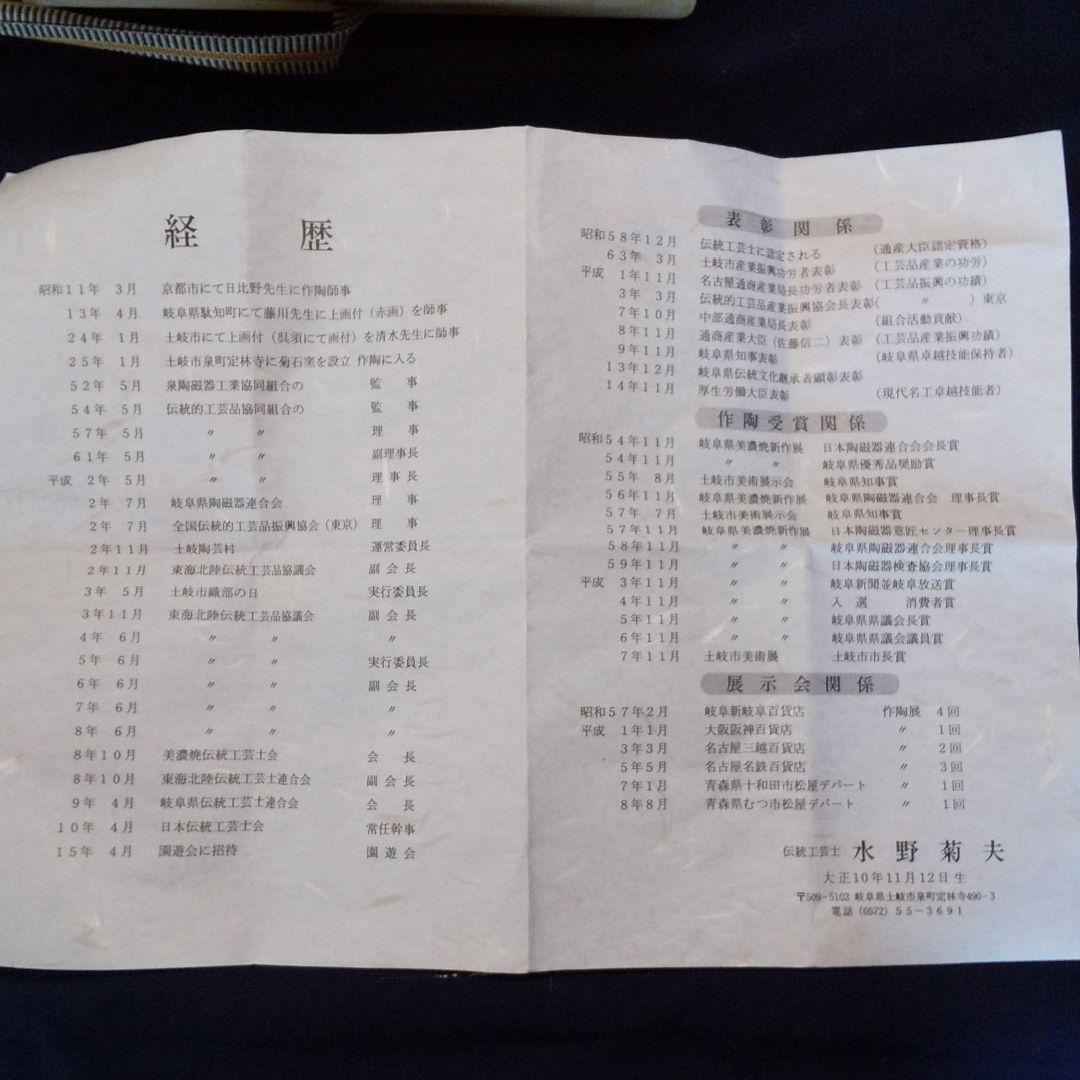 経歴
昭和11年 3月 京都市にて日比野先生に作陶師事
13年 4月 岐阜県駄知町にて藤川先生に上画付(赤画)を師事
24年 1月 土岐市にて上画付(呉須にて画付)を清水先生に師事
25年 1月 土岐市泉町定林寺に菊石窯を設立 作陶に入る
52年 5月 泉陶磁器工業協同組合の 監事
54年 5月 伝統的工芸品協同組合の 監事
57年 5月 〃 〃 理事
61年 5月 〃 〃 副理事長
平成 2年 5月 〃 〃 理事長
2年 7月 岐阜県陶磁器連合会 理事
2年 7月 全国伝統的工芸品振興協会(東京) 理事
2年11月 土岐陶芸村 運営委員長
2年11月 東海北陸伝統工芸品協議会 副会長
3年 5月 土岐市織部の日 実行委員長
3年11月 東海北陸伝統工芸品協議会 副会長
4年 6月 〃 〃 〃
5年 6月 〃 〃 実行委員長
6年 6月 〃 〃 副会長
7年 6月 〃 〃 〃
8年 6月 〃 〃 〃
8年10月 美濃焼伝統工芸士会 会長
8年10月 東海北陸伝統工芸士連合会 副会長
9年 4月 岐阜県伝統工芸士連合会 会長
10年 4月 日本伝統工芸士会 常任幹事
15年 4月 園遊会に招待 園遊会
表彰関係
昭和58年12月 伝統工芸士に認定される (通産大臣認定資格)
63年 3月 土岐市産業振興功労者表彰 (工芸品産業の功労)
平成 1年11月 名古屋通商産業局長功労者表彰 (工芸品振興の功績)
3年 3月 伝統的工芸品産業振興協会長表彰( 〃 )東京
7年10月 中部通商産業局長表彰 (組合活動貢献)
8年11月 通商産業大臣(佐藤信二)表彰 (工芸品産業振興功績)
9年11月 岐阜県知事表彰 (岐阜県卓越技能保持者)
13年12月 岐阜県伝統文化継承者顕彰表彰
14年11月 厚生労働大臣表彰 (現代名工卓越技能者)
作陶受賞関係
昭和54年11月 岐阜県美濃焼新作展 日本陶磁器連合会会長賞
54年11月 〃 〃 岐阜県優秀品奨励賞
55年 8月 土岐市美術展示会 岐阜県知事賞
56年11月 岐阜県美濃焼新作展 岐阜県陶磁器連合会 理事長賞
57年 7月 土岐市美術展示会 岐阜県知事賞
57年11月 岐阜県美濃焼新作展 日本陶磁器意匠センター理事長賞
58年11月 〃 〃 岐阜県陶磁器連合会理事長賞
59年11月 〃 〃 日本陶磁器検査協会理事長賞
平成 3年11月 〃 〃 岐阜新聞並岐阜放送賞
4年11月 〃 〃 入選 消費者賞
5年11月 〃 〃 岐阜県県議会長賞
6年11月 〃 〃 岐阜県県議会議員賞
7年11月 土岐市美術展 土岐市市長賞
展示会関係
昭和57年2月 岐阜新岐阜百貨店 作陶展 4回
平成 1年1月 大阪阪神百貨店 〃 1回
3年3月 名古屋三越百貨店 〃 2回
5年5月 名古屋名鉄百貨店 〃 3回
7年1月 青森県十和田市松屋デパート 〃 1回
8年8月 青森県むつ市松屋デパート 〃 1回
伝統工芸士 水野菊夫
大正10年11月12日生
〒509-5102 岐阜県土岐市泉町定林寺490-3
電話(0572)55-3691